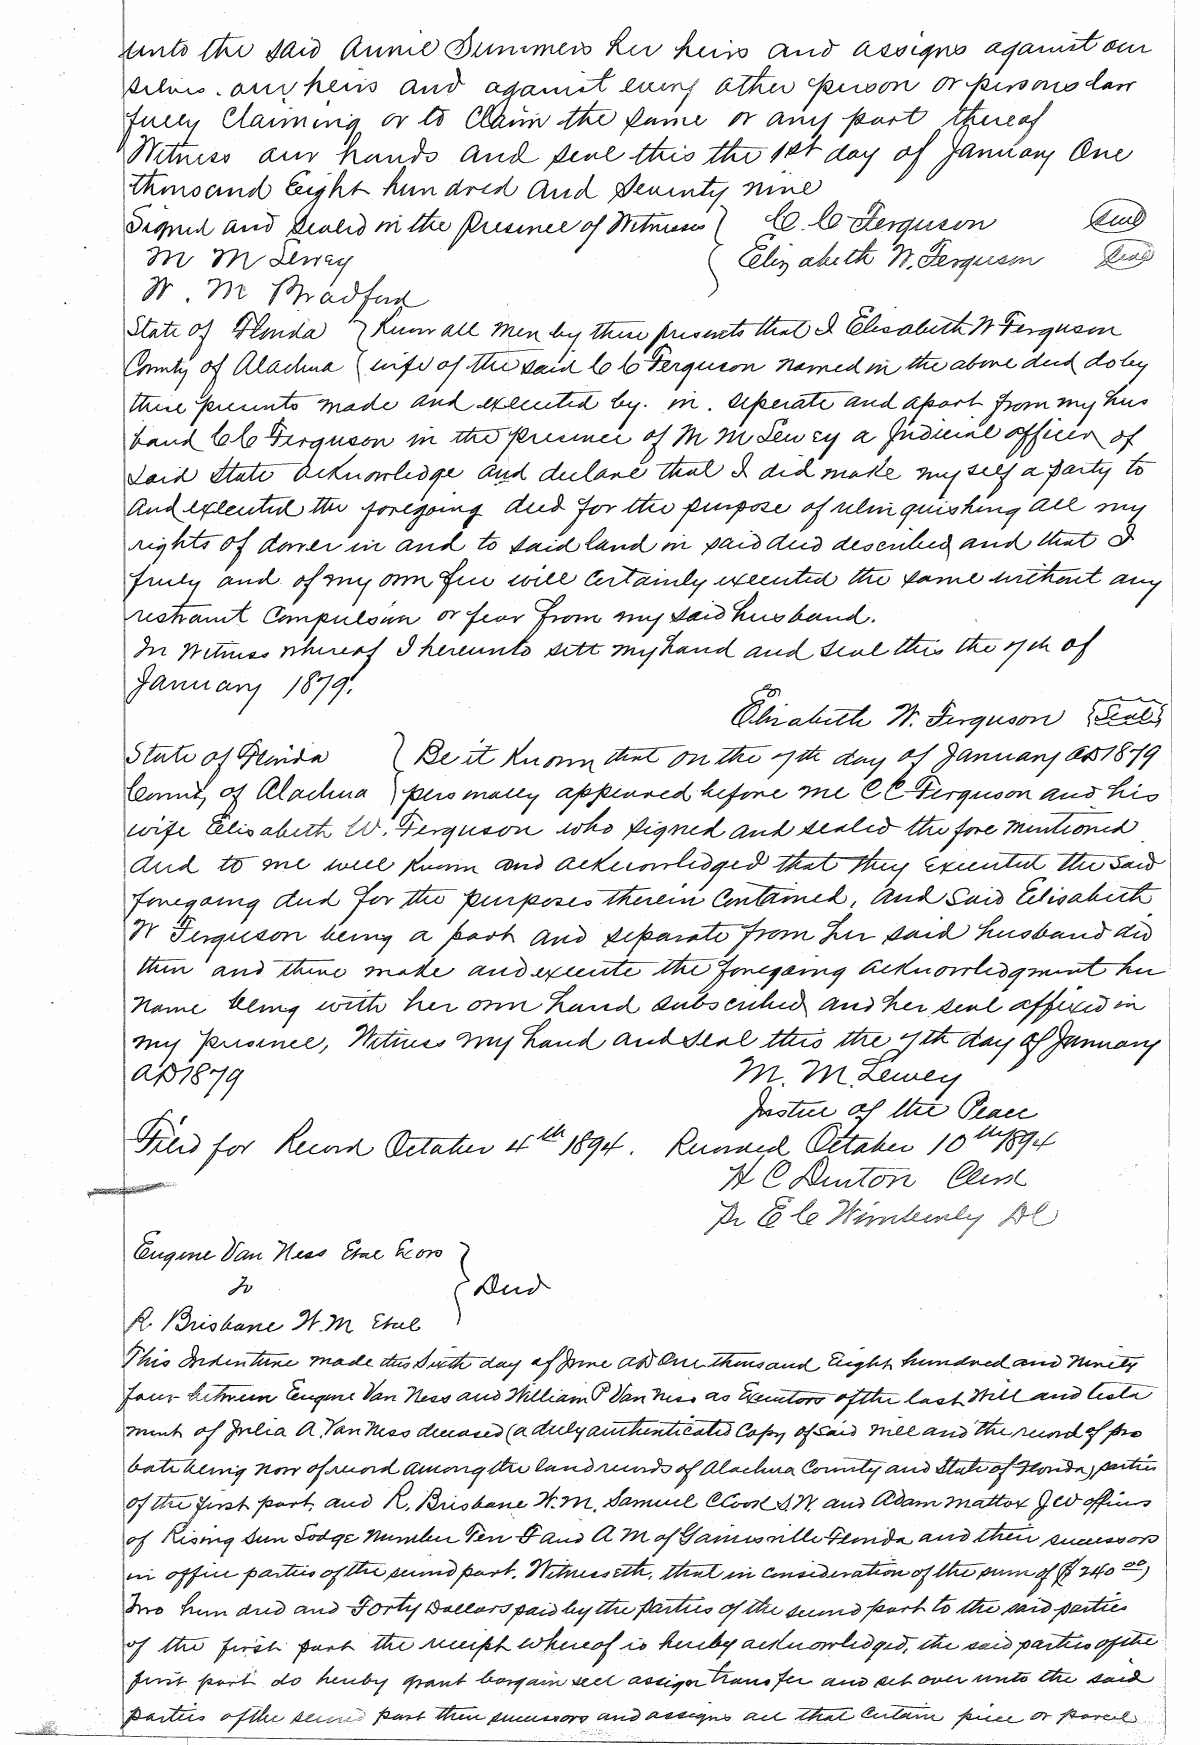 unto the said Annie Summers her heirs and assigns against our
selves. our heirs and against every other person or persons law
fully Claiming or to Claim the same or any part thereof
Witness our hands and seal this the 1st day of January One
thousand Eight hundred and Seventy nine
Signed and Sealed in the Presence of Witnesses } C. C. Ferguson (Seal)
M M Lewey { Elizabeth W. Ferguson (Seal)
W. M Bradford
State of Florida } Know all Men by these presents that I Elisabeth W Ferguson
County of Alachua { wife of the said C C Ferguson named in the above deed do by
these presents made and executed by. m. seperate and apart from my hus
band C C Ferguson in the presence of M M Lewey a Judicial officer of
said State acknowledge and declare that I did make myself a party to
and executed the foregoing deed for the purpose of relinquishing all my
rights of dower in and to said land in said deed described and that I
freely and of my own free will certainly executed the same without any
restraint Compulsion or fear from my said husband.
In Witness whereof I hereunto sett my hand and seal this the 7th of
January 1879.
Elisabeth W. Ferguson {Seal}
State of Florida } Be it Known that on the 7th day of January AD 1879
County of Alachua } personally appeared before me C C Ferguson and his
wife Elisabeth W. Ferguson who signed and sealed the fore mentioned
deed to me well known and acknowledged that they executed the said
foregoing deed for the purposes therein contained, and said Elisabeth
W Ferguson being a part and separate from her said husband did
then and there make and execute the foregoing acknowledgment her
name being with her own hand subscribed and her seal affixed in
my presence, Witness my hand and seal this the 7th day of January
AD 1879 M. M. Lewey
Justice of the Peace
Filed for Record October 4th 1894. Recorded October 10th 1894
H C Denton Clerk
Pr E C Wimberly DC
Eugene Van Ness Etal Exors }
To { Deed
R. Brisbane W.M Etal
This Indenture made this Sixth day of June AD One thousand Eight hundred and Ninety
four between Eugene Van Ness and William P Van Ness as Executors of the last Will and testa
ment of Julia A. Van Ness deceased (a duly authenticated Copy of said will and the record of pro
bate being now of record among the land records of Alachua County and State of Florida) parties
of the first part and R. Brisbane W. M. Samuel C Cook S.W. and Adam Mattox J W officers
of Rising Sun Lodge Number Ten F and A M of Gainesville Florida and their successors
in office parties of the second part. Witnesseth, that in consideration of the sum of ($240 00)
Two hundred and Forty Dollars paid by the parties of the second part to the said parties
of the first part the receipt whereof is hereby acknowledged, the said parties of the
first part do hereby grant bargain sell assign transfer and set over unto the said
parties of the second part their successors and assigns all that certain piece or parcel